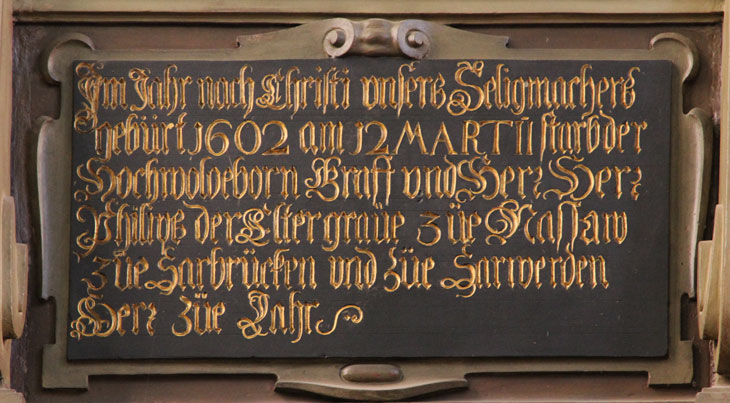 Im Jahr nach Christi unsers Seligmachers
gebürt 1602 am 12 MARTII starb der
Hochwolgeborn Graff und Herz Herz
Philips der Elter graüe züe Nassaw
züe Sarbrücken und züe Sarwerden
Herz züe Lahr